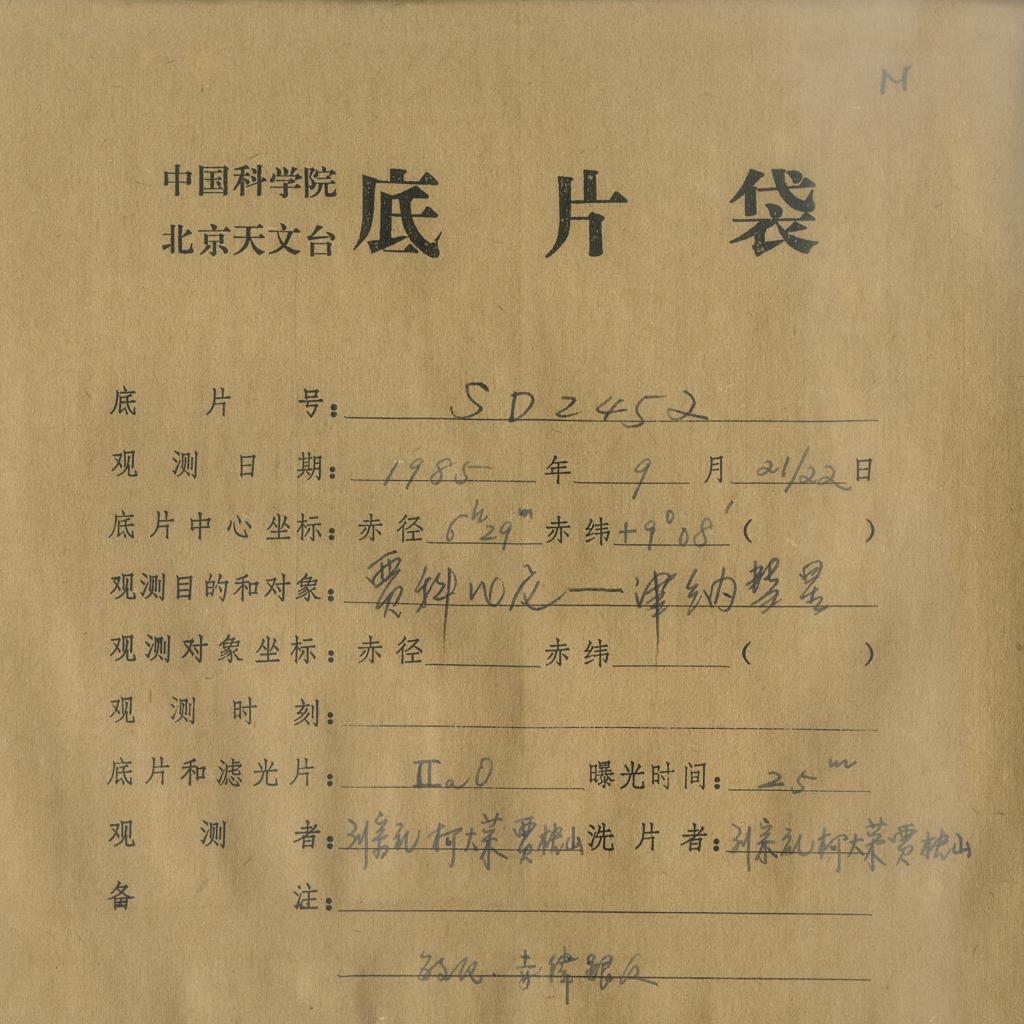 M
中国科学院
北京天文台
底片袋
底片号：SD2452
观测日期：1985年9月21/22日
底片中心坐标：赤径6ʰ29ᵐ赤纬+9°08′（ ）
观测目的和对象：贾科比尼—津纳彗星
观测对象坐标：赤径 赤纬 （ ）
观测时刻：
底片和滤光片：ⅡaO 曝光时间：25ᵐ
观测者：刘宗礼 柯大荣 贾桂山 洗片者：刘宗礼 柯大荣 贾桂山
备注：
敏化. 赤纬跟